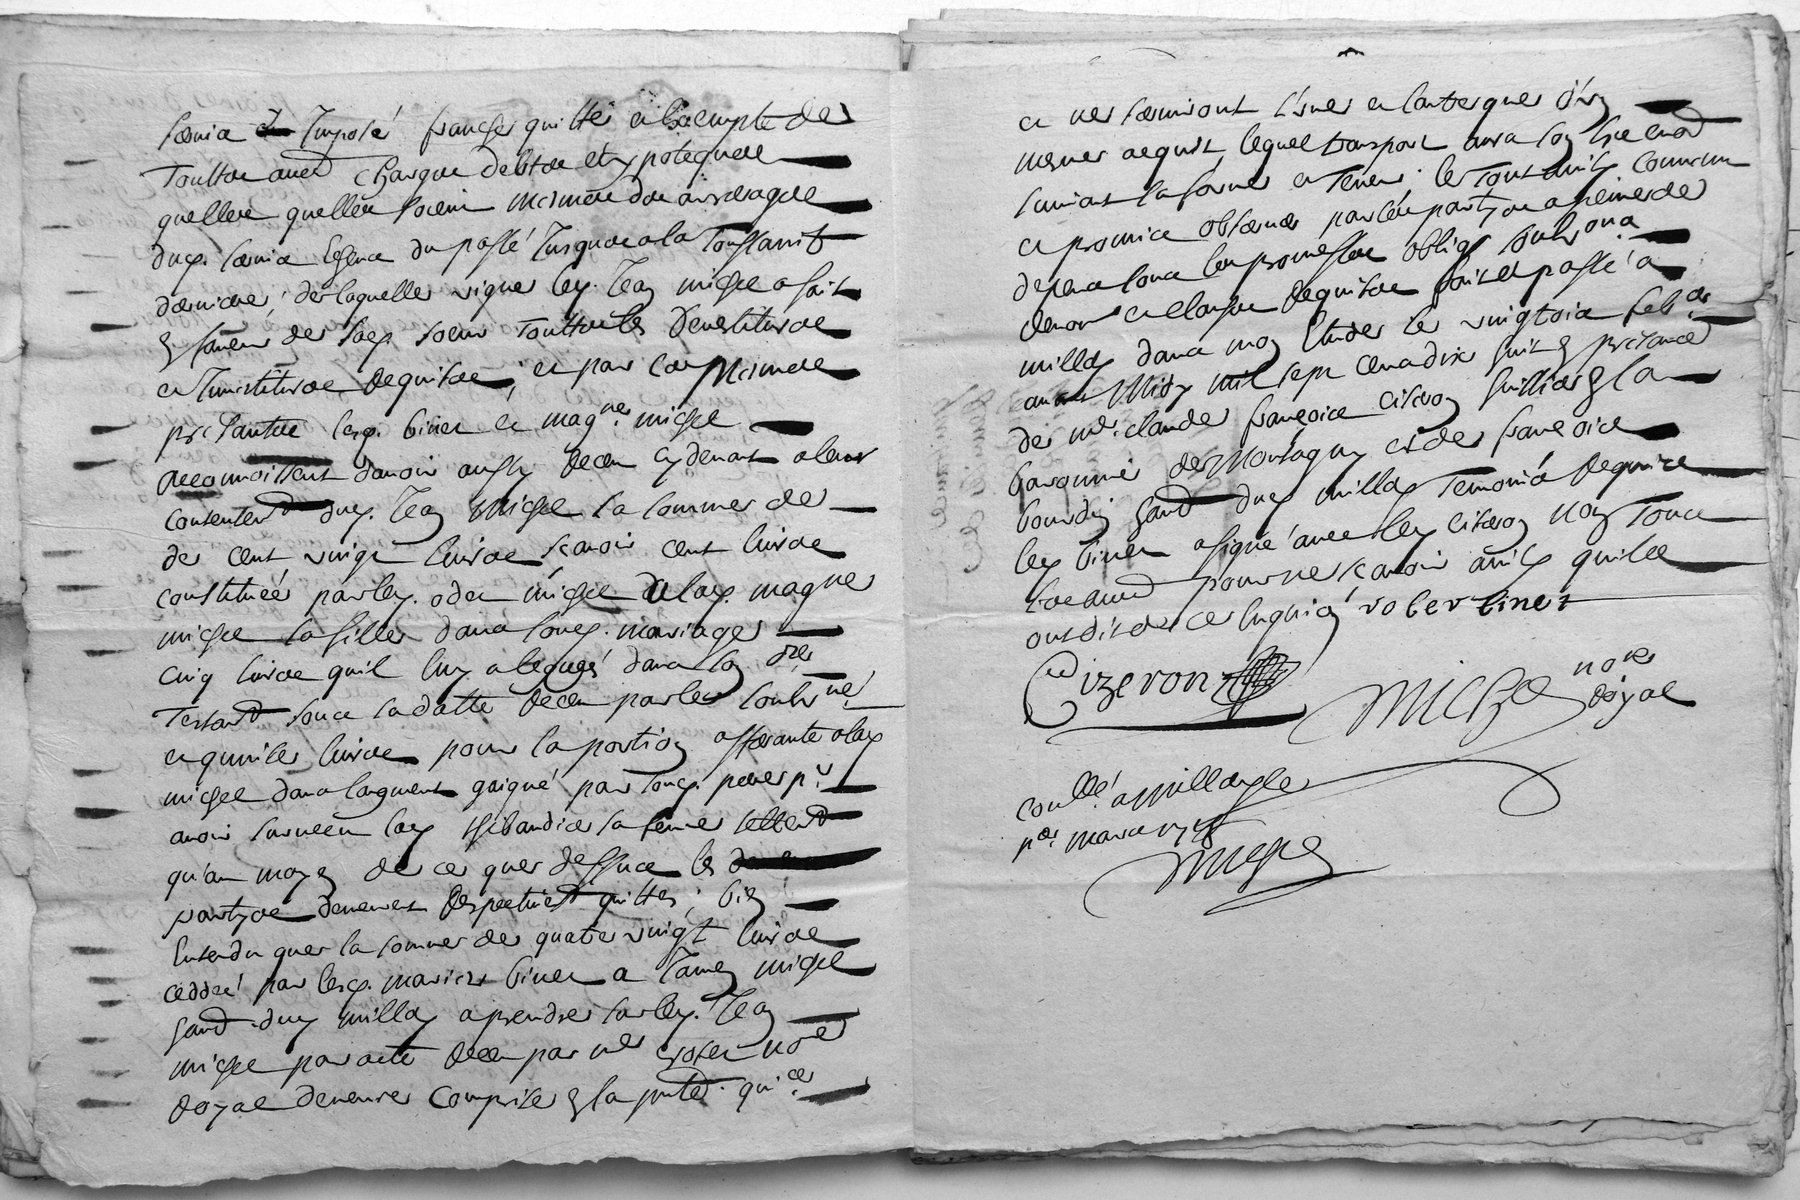 servis Imposé franche quitte et exempte de
touttes autres charges debtes et ypoteques
quelles quelles soient mesme des arrerages
dud. servis Eschus du passé Jusques a la Toussaint
derniere, de laquelle vigne led. Jean michel a fait
En faveur de sad. soeur touttes les devestitures
et Investitures Requises, et par ces mesmes
presantes lesd. binet et magne. michel
Reconnoissent davoir aussy Receu cy devant a leur
contentemt dud. Jean michel la somme de
de cent vingt livres scavoir cent livres
constituées par led. odet michel a lad. magne
michel sa fille dans soud. mariage
cinq livres quil luy a legués dans son der
testamt sous sa datte Receu par le soubsne.
et quinze livres pour la portion afferante a lad.
michel dans laugment gaigné par soud. pere pr.
avoir survecu lad. thibaudier sa femme tellemt
qu'au moyen de ce que dessus les
partyes demeurent Respectivemt quittes, bien
Entendu que la somme de quatre vingt livres
ceddée par lesd. mariez binet a James michel
habt. dud. millay a prendre sur led. Jean
michel par acte Receu par me not
Royal demeure comprise En la pnte. quice.
et ne serviront L'une et lautre que d'un
mesme acquit, lequel transport aura son lieu
suivant sa forme et teneur. le tout ainsy convenu
et promis observer par les partyes a peine de
depens sous les promesses oblig soubs
Renon et clauses Requises fait et passé a
millay dans mon Etude le vingtsix feb.er
avant Midy mil sept cens dix huit En presance
de me. claude françois ciseron Huissier En la
baronnie de Montagny et de françois
bourdin habt dud. millay temoins Requis
led. binet a signé avec led. ciseron non tous
les autres pour ne scavoir ainsy quils
ont dit de ce Enquis robert binet
Cizeron
Michel nore Royal
conllé. a st
mars 1718
Michel